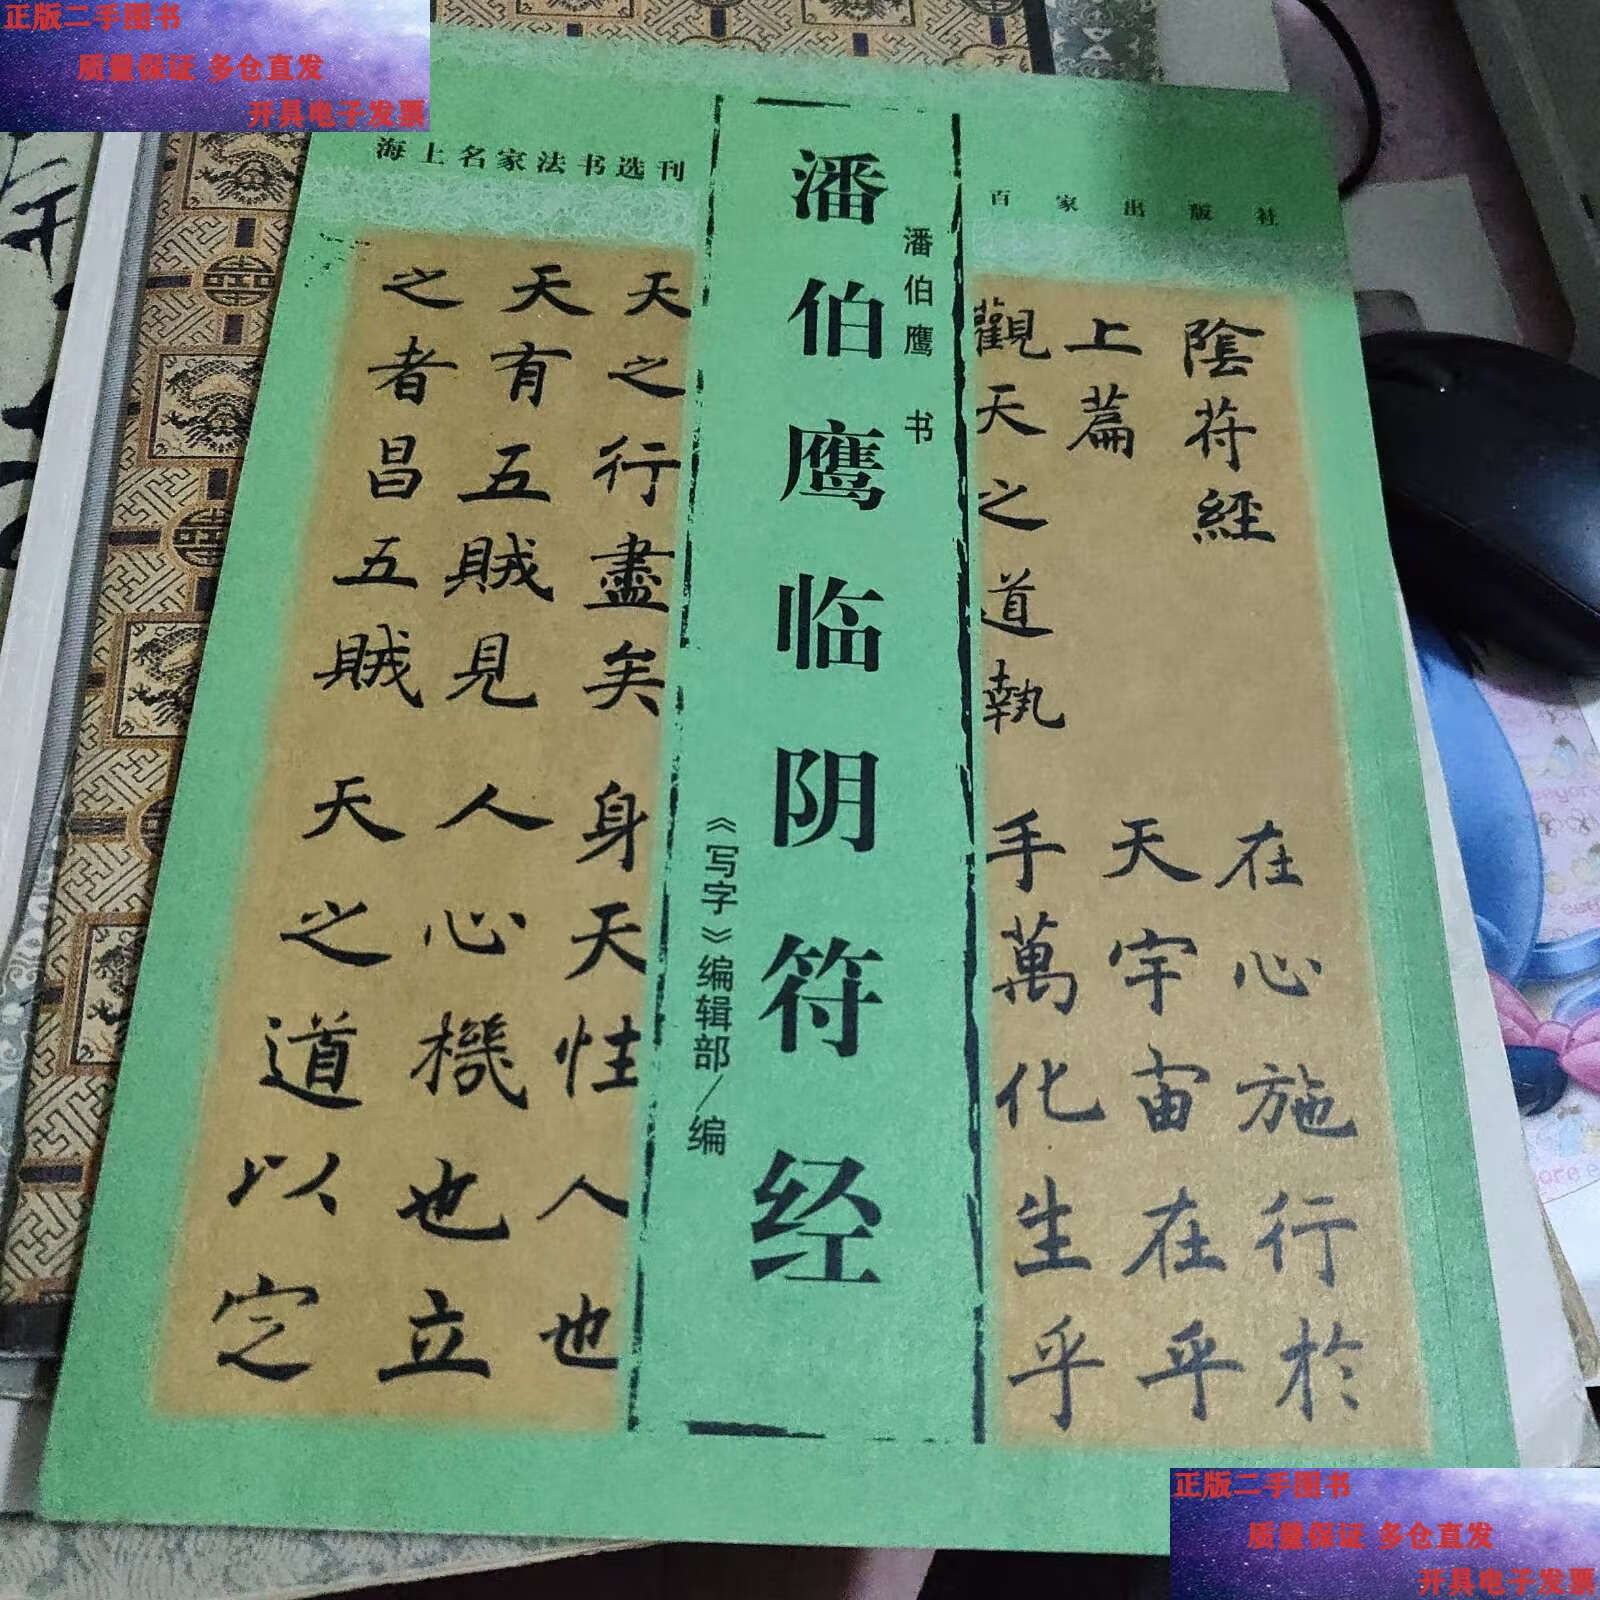 正版二手图书
质量保证 多仓直发
开具电子发票
海上名家法书选刊
百家出版社
潘伯鹰临阴符经
潘伯鹰 书
《写字》编辑部／编
陰苻經
上篇
觀天之道執
天之行盡矣
天有五賊見
之者昌五賊
在心施行於
天宇宙在乎
手萬化生乎
身天性人也
人心機也立
天之道以定
正版二手图书
质量保证 多仓直发
开具电子发票